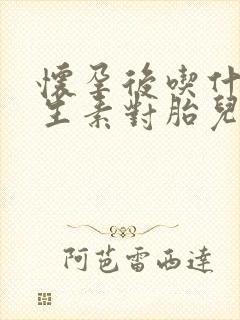 懷孕後喫什
生素對胎兒
阿芭雷西達